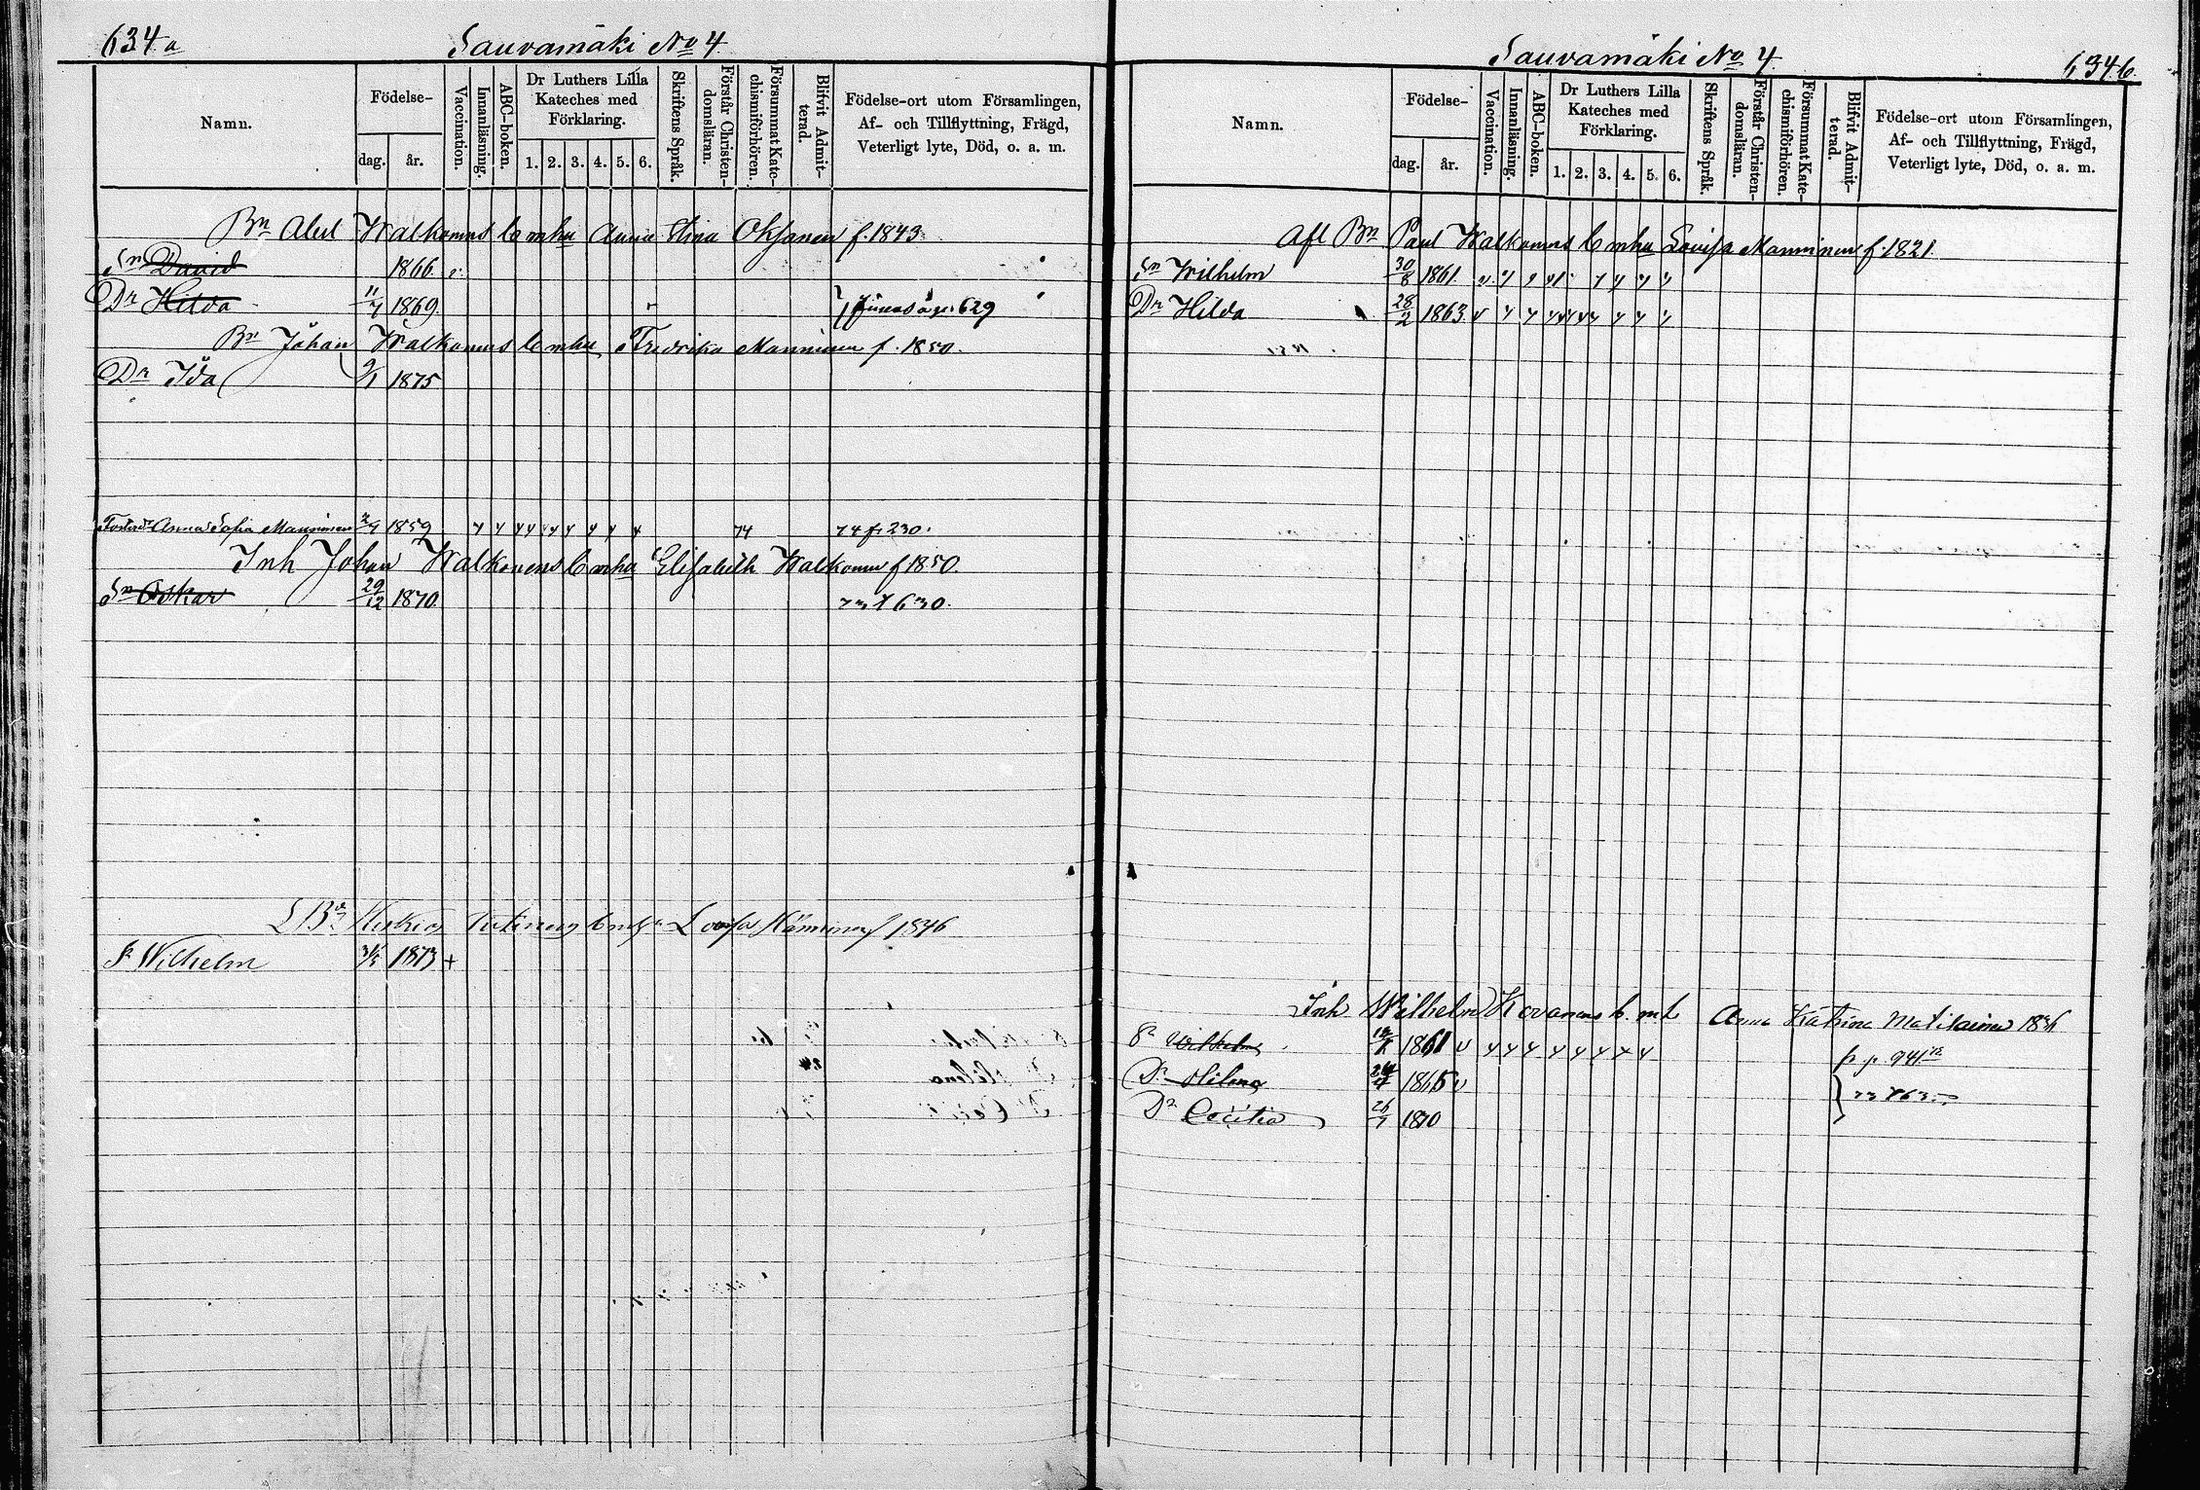 634.a
Sauvamäki No 4.
Namn.
Födelse-
dag.
år.
Vaccination.
Innanläsning.
ABC-boken.
Dr Luthers Lilla
Kateches med
Förklaring.
1. 2. 3. 4. 5. 6.
Skriftens Språk.
Förstår Christen-
domsläran.
Försummat Kate-
chismiförhören.
Blifvit Admit-
terad.
Födelse-ort utom Församlingen,
Af- och Tillflyttning, Frägd,
Veterligt lyte, Död, o. a. m.
Bn Abel Walkonens b m hu Anna Stina Oksanen f. 1843
Sn David 1866
Dr Hilda 11/4 1869. 629
Bn Johan Walkonens b m hu Fredrika Manninen f. 1850.
Dr Ida 9/1 1875
Anna Sofia Manninen 1859 74 74 f 230.
Inh Johan Walkonens b m hu Elisabeth Walkonen f 1850.
Sn Oskar 29/12 1870. 73 f 630.
Lovisa 1846
S. Wilhelm 31/5 1873 +
Sauvamäki No 4.
634 b.
Namn.
Födelse-
dag.
år.
Vaccination.
Innanläsning.
ABC-boken.
Dr Luthers Lilla
Kateches med
Förklaring.
1. 2. 3. 4. 5. 6.
Skriftens Språk.
Förstår Christen-
domsläran.
Försummat Kate-
chismiförhören.
Blifvit Admit-
terad.
Födelse-ort utom Församlingen,
Af- och Tillflyttning, Frägd,
Veterligt lyte, Död, o. a. m.
Afl Bn Paul Walkonens b m hu Lovisa Manninen f. 1821.
Sn Wilhelm 30/8 1861
Dr Hilda 28/2 1863
Inh Wilhelm Kovanens b. m. h Anna Katrina Matilainen 1836
Sn Wilhelm 1861 p. p. 941
Dr Helena 1865
Dr Cecilia 26/7 1870